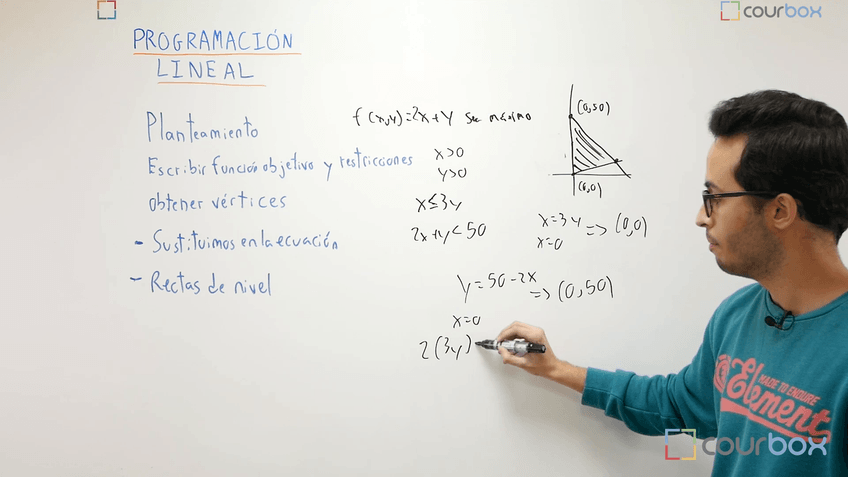 courbox
PROGRAMACIÓN
LINEAL
Planteamiento
Escribir función objetivo y restricciones
obtener vértices
- Sustituimos en la ecuación
- Rectas de nivel
f(x,y)=2x+y sea máximo
x>0
y>0
x≤3y
2x+y<50
(0,50)
(0,0)
x=3y => (0,0)
x=0
y=50-2x => (0,50)
x=0
2(3y)
Element
MADE TO ENDURE
courbox